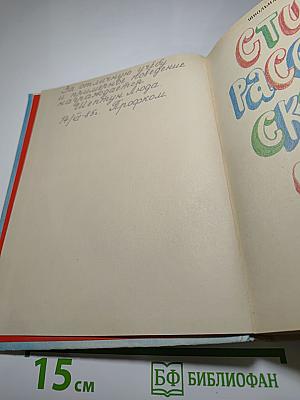 За отличную учебу
и примерное поведение
награждается
Шептун Люда
Профком.
СТИ
РАСС
СК
15 см
БФ БИБЛИОФАН